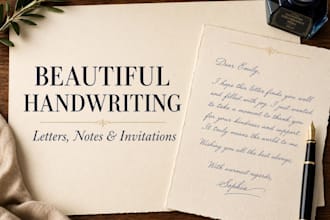 BEAUTIFUL
HANDWRITING
Letters, Notes & Invitations
Dear Emily,
I hope this letter finds you well
and filled with joy. I just wanted
to take a moment to thank you
for your kindness and support.
It truly means the world to me.
Wishing you all the best always.
With warmest regards,
Sophia